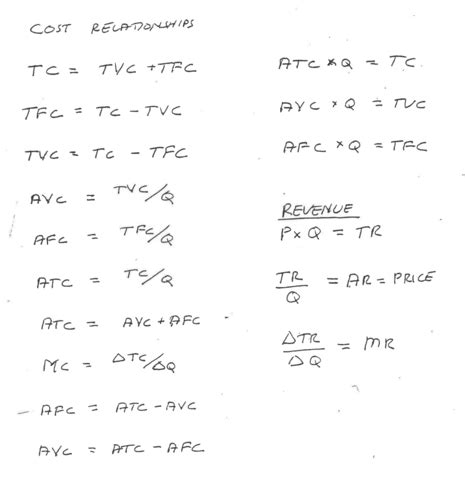 COST RELATIONSHIPS
TC = TVC + TFC
TFC = TC - TVC
TVC = TC - TFC
AVC = TVC/Q
AFC = TFC/Q
ATC = TC/Q
ATC = AVC + AFC
MC = ΔTC/ΔQ
AFC = ATC - AVC
AVC = ATC - AFC
ATC × Q = TC
AVC × Q = TVC
AFC × Q = TFC
REVENUE
P × Q = TR
TR/Q = AR = PRICE
ΔTR/ΔQ = MR